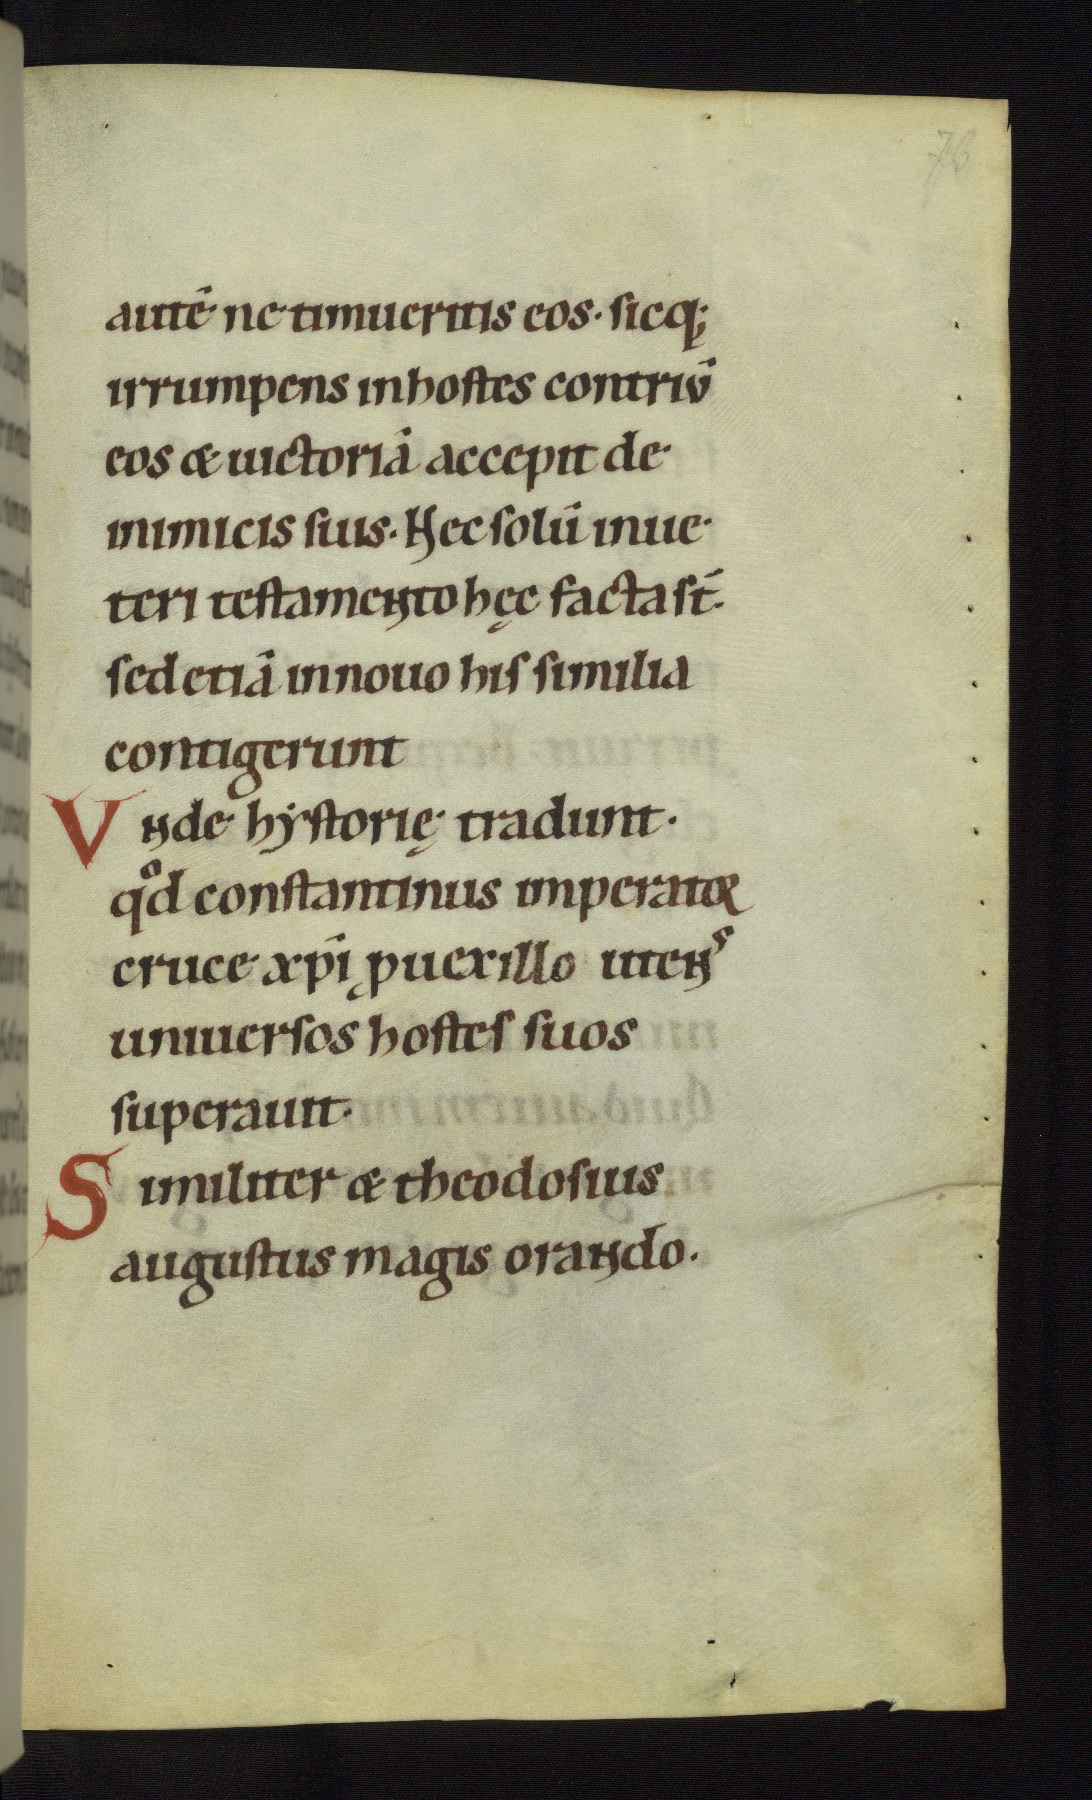 76
autē ne timueritis eos· sicq;
irrumpens inhostes contriu̅
eos & uictoriā accepit de
inimicis suis· Hec solū inue
teri testamento hęc facta st̅·
sed etiā innouo his similia
contigerunt
Vnde hystorię tradunt·
qͦd constantinus imperator
cruce xp̅i ꝓ uexillo utens
uniuersos hostes suos
superauit·
Similiter & theodosius
augustus magis orando·